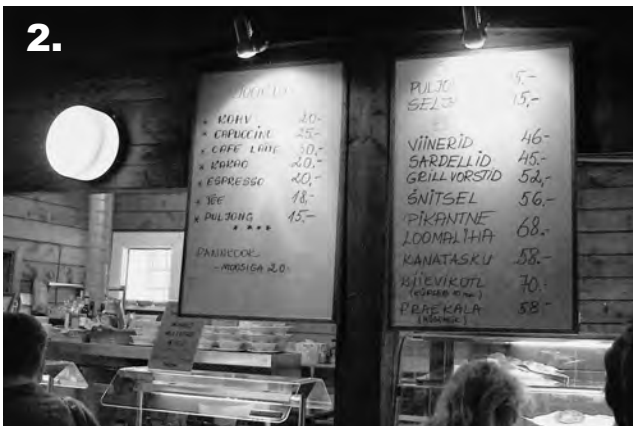 2.
* KOHV 20.-
* CAPUCCINO 25.-
* CAFE LATTE 30.-
* KAKAO 20.-
* ESPRESSO 20.-
* TEE 18.-
* PULJONG 15.-
* * * *
PANNKOOK
- MOOSIGA 20.-
PULJO 15.-
SELJ 15,-
VIINERID 46-
SARDELLID 45.-
GRILLVORSTID 52,-
ŠNITSEL 56.-
PIKANTNE
LOOMALIHA 68.-
KANATASKU 58.-
KIIEVI KOTL 70.-
PRAEKALA 58-